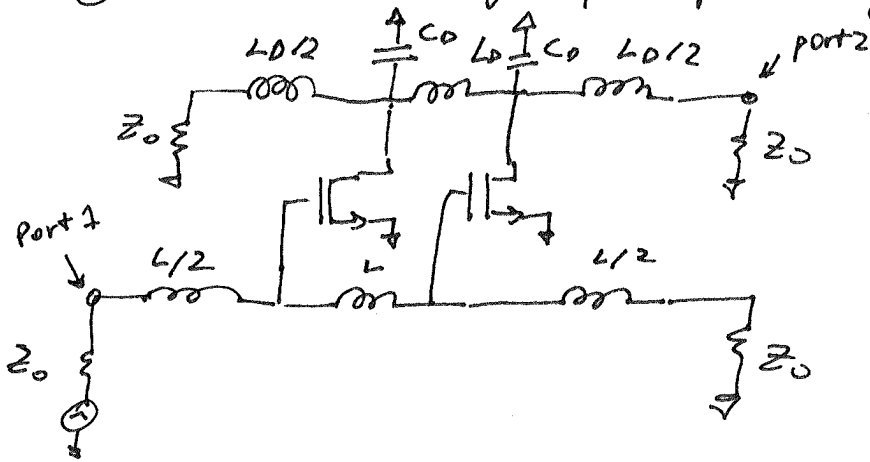 C_D C_D
L_D/2 L_D L_D/2 port2
Z_0 Z_0
port1
L/2 L L/2
Z_0 Z_0